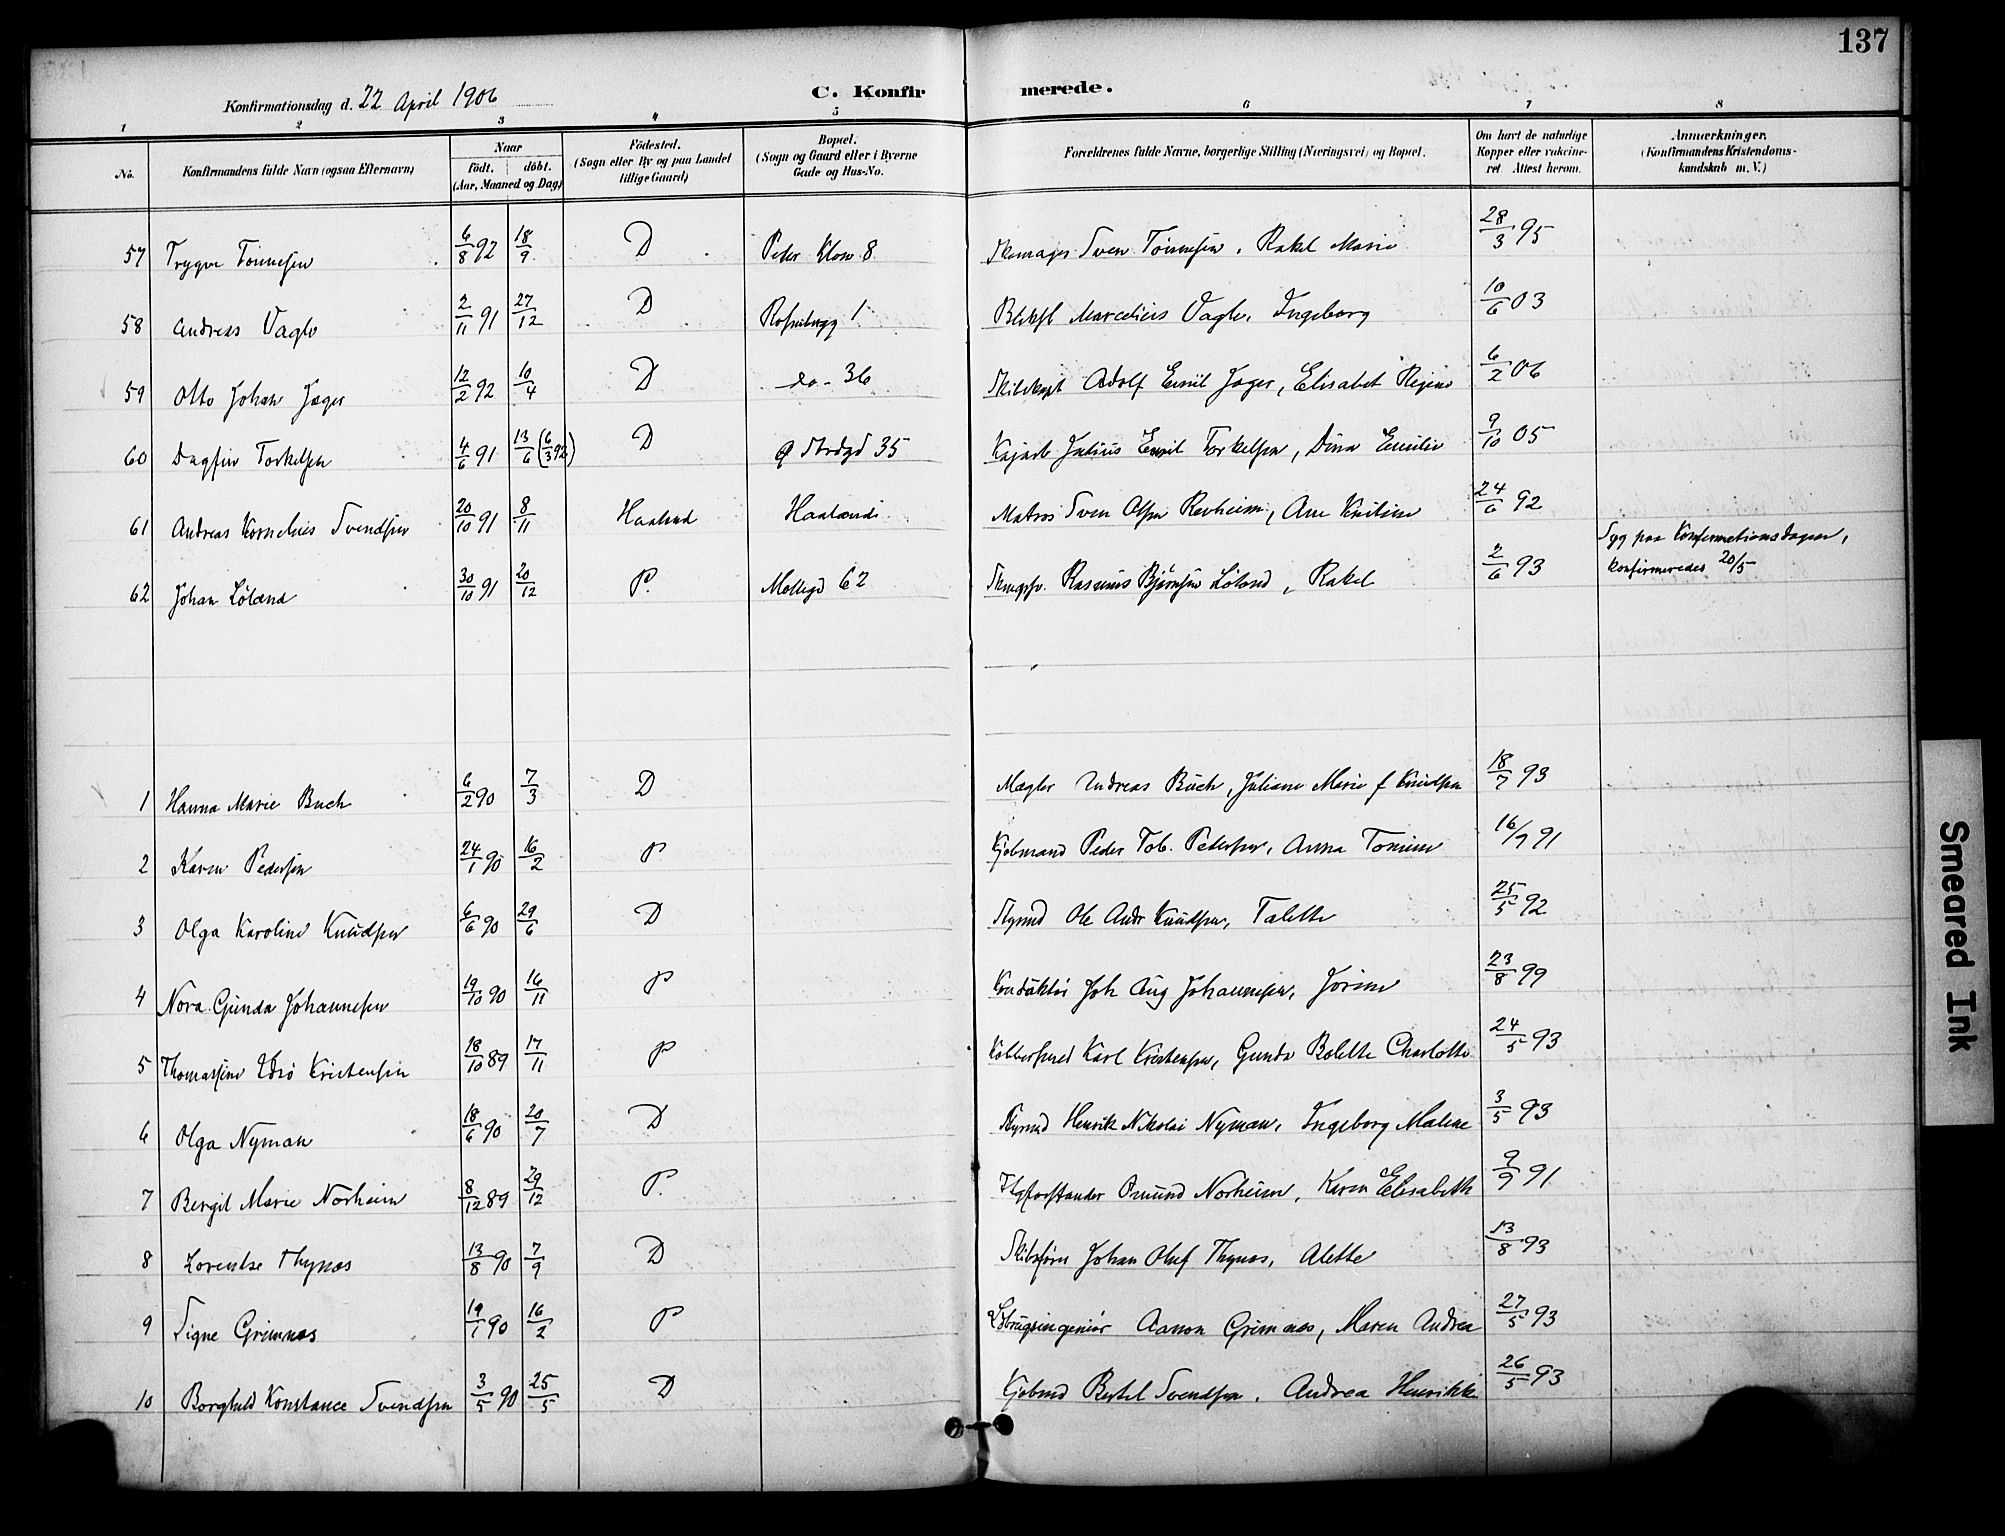 137
Konfirmationsdag d. 22 April 1906 C. Konfirmerede.
1 2 3 4 5 6 7 8
No. Konfirmandens fulde Navn (ogsaa Efternavn) Naar födt. döbt. (Aar, Maaned og Dag) Födested. (Sogn eller By og paa Landet tillige Gaard) Bopæl. (Sogn og Gaard eller i Byerne Gade og Hus-No. Forældrenes fulde Navne, borgerlige Stilling (Næringsvei) og Bopæl. Om havt de naturlige Kopper eller vakcineret Attest herom. Anmærkninger. (Konfirmandens Kristendomskundskab m. V.)
57 Trygve Tönnesen 6/8 92 18/9 D Peder Klow 8 Skomager Sven Tönnesen, Rakel Marie 28/3 95
58 Andreas Vagle 2/11 91 27/12 D 1 Marcelius Vagle, Ingeborg 10/6 03
59 Otto Johan Jæger 12/2 92 10/4 D do - 36 Skibskapt Adolf Emil Jæger, Elisabet Regine 6/2 06
60 Dagfin Torkelsen 4/6 91 13/6 (6/3 92) D Ø Strdgd 35 Julius Emil Torkelsen, Dina Emilie 9/10 05
61 Andreas Kornelius Svendsen 20/10 91 8/11 Haaland Haaland Matros Sven Olsen Revheim, Ane Kristine 24/6 92
Syg paa Konfirmationsdagen,
konfirmeredes 20/5
62 Johan Löland 30/10 91 20/12 P. Møllegd 62 Rasmus Bjørnsen Løland, Rakel 2/6 93
1 Hanna Marie Buch 6/2 90 7/3 D Mægler Andreas Buch, Juliane Marie f Knudsen 18/7 93
2 Karen Pedersen 24/1 90 16/2 P Kjøbmand Peder Tob. Pedersen, Anna Tomine 16/7 91
3 Olga Karoline Knudsen 6/6 90 29/6 D Styrmd Ole Andr Knudsen, Talette 25/5 92
4 Nora Gunda Johannesen 19/10 90 16/11 P Konduktör Joh Aug Johannesen, Jörine 23/8 99
5 Thomassine Edsö Kristensen 18/10 89 17/11 P Kobbersmed Karl Kristensen, Gunda Bolette Charlotte 24/5 93
6 Olga Nyman 18/6 90 20/7 D Styrmd Henrik Nikolai Nyman, Ingeborg Malene 3/5 93
7 Bergit Marie Norheim 8/12 89 29/12 P. Omund Norheim, Karen Elisabeth 9/9 91
8 Lorentse Thynæs 13/8 90 7/9 D Skibsförer Johan Oluf Thynæs, Alette 13/8 93
9 Signe Grimnæs 19/1 90 16/2 P Aanon Grimnæs, Maren Andrea 27/5 93
10 Borghild Konstance Svendsen 3/5 90 25/5 D Kjøbmd Bertel Svendsen, Andrea Henrikke 26/5 93
Smeared Ink